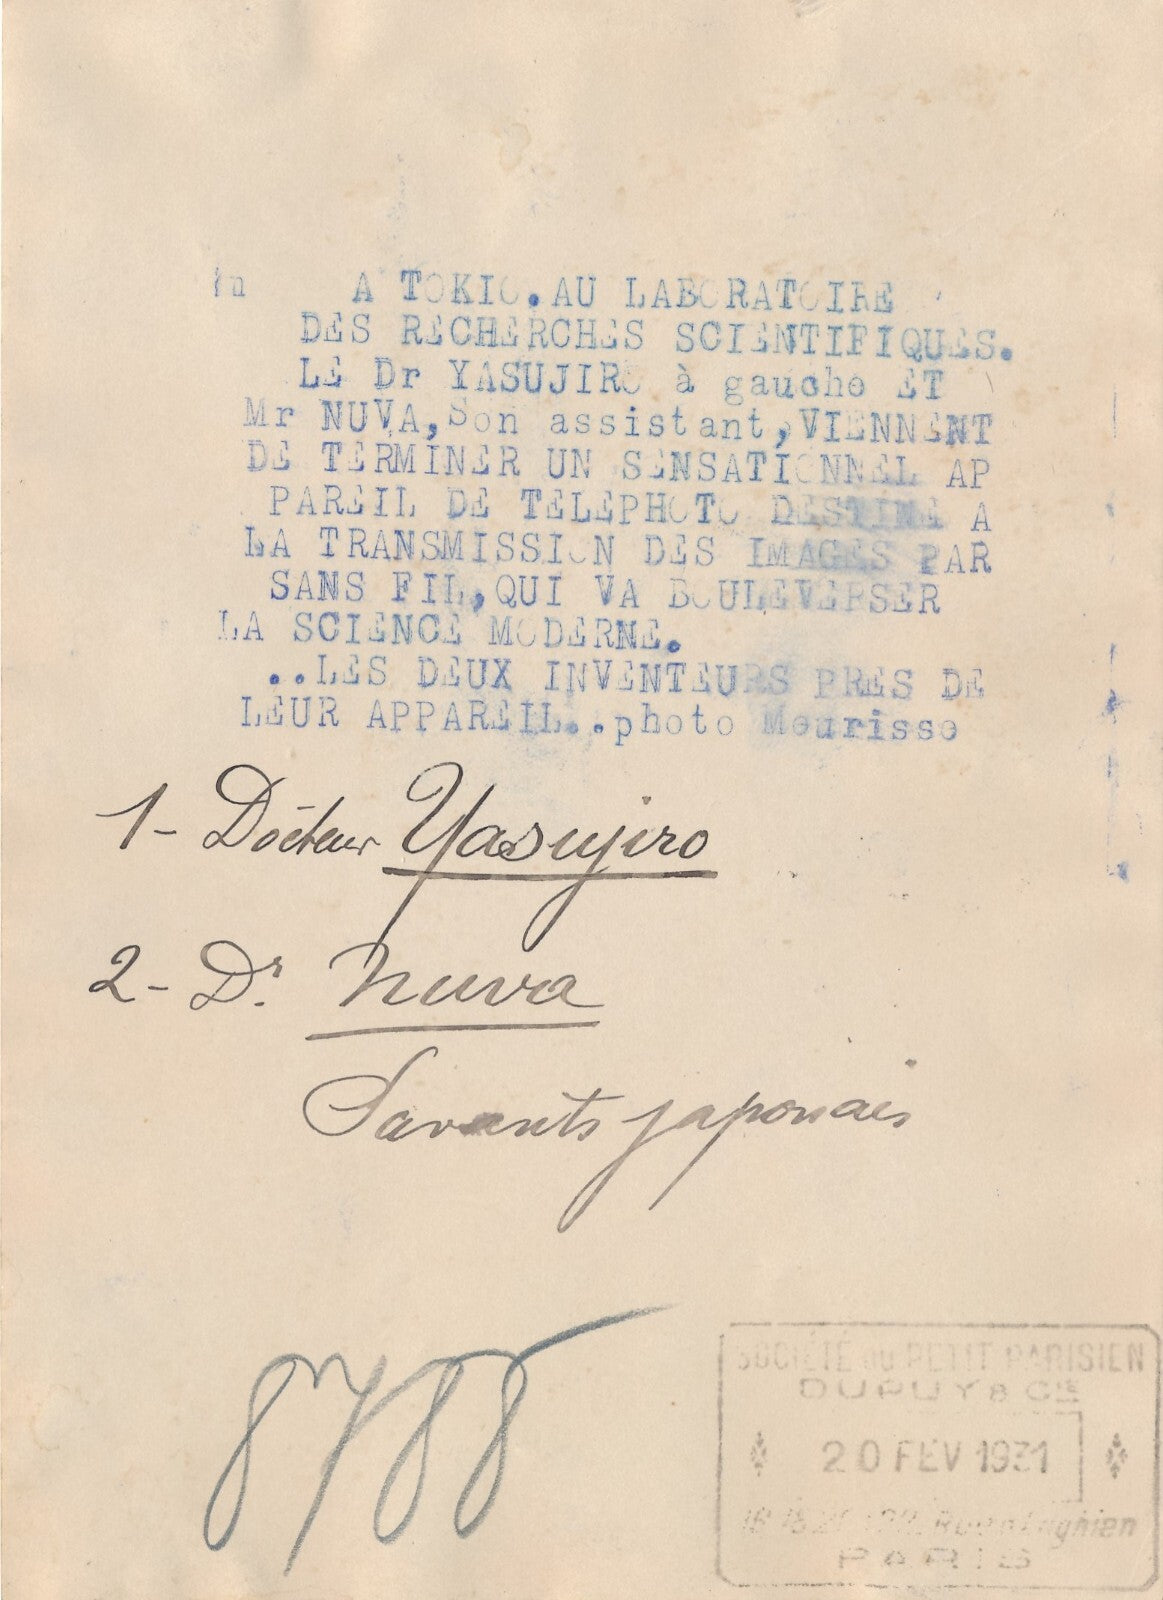 A TOKIO. AU LABORATOIRE
DES RECHERCHES SCIENTIFIQUES.
LE Dr YASUJIRO à gauche ET
Mr NUVA, Son assistant, VIENNENT
DE TERMINER UN SENSATIONNEL AP
PAREIL DE TELEPHOTO DESTINE A
LA TRANSMISSION DES IMAGES PAR
SANS FIL, QUI VA BOULEVERSER
LA SCIENCE MODERNE.
..LES DEUX INVENTEURS PRES DE
LEUR APPAREIL..photo Meurisse
1- Docteur Yasujiro
2- Dr. Nuva
Savants japonais
8788
SOCIÉTÉ du PETIT PARISIEN
DUPUY & Cie
20 FEV 1931
Rue d'Enghien
PARIS